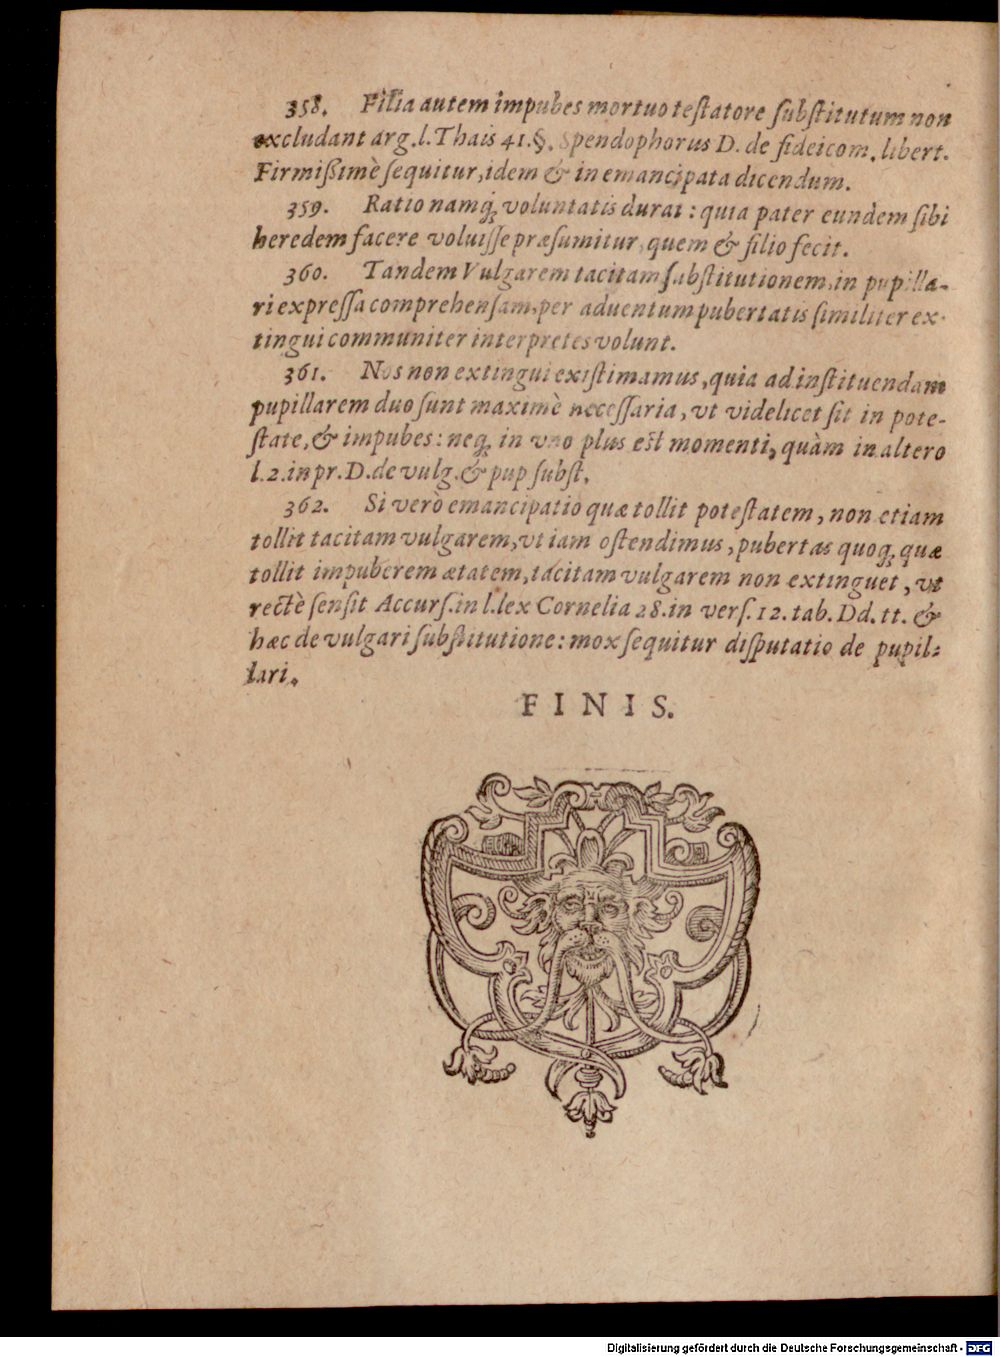 358. Filia autem impubes mortuo testatore substitutum non
excludant arg. l. Thais 41. §. Spendophorus D. de fideicom. libert.
Firmißimè sequitur, idem & in emancipata dicendum.
359. Ratio namq; voluntatis durat: quia pater eundem sibi
heredem facere voluisse præsumitur, quem & filio fecit.
360. Tandem Vulgarem tacitam substitutionem, in pupilla-
ri expressa comprehensam, per aduentum pubertatis similiter ex-
tingui communiter interpretes volunt.
361. Nos non extingui existimamus, quia ad instituendam
pupillarem duo sunt maximè necessaria, vt videlicet sit in pote-
state, & impubes: neq; in vno plus est momenti, quàm in altero
l. 2. in pr. D. de vulg. & pup subst.
362. Si verò emancipatio quæ tollit potestatem, non etiam
tollit tacitam vulgarem, vt iam ostendimus, pubertas quoq; quæ
tollit impuberem ætatem, tacitam vulgarem non extinguet, vt
rectè sensit Accurs. in l. lex Cornelia 28. in vers. 12. tab. Dd. tt. &
hæc de vulgari substitutione: mox sequitur disputatio de pupil-
lari.
FINIS.
Digitalisierung gefördert durch die Deutsche Forschungsgemeinschaft - DFG